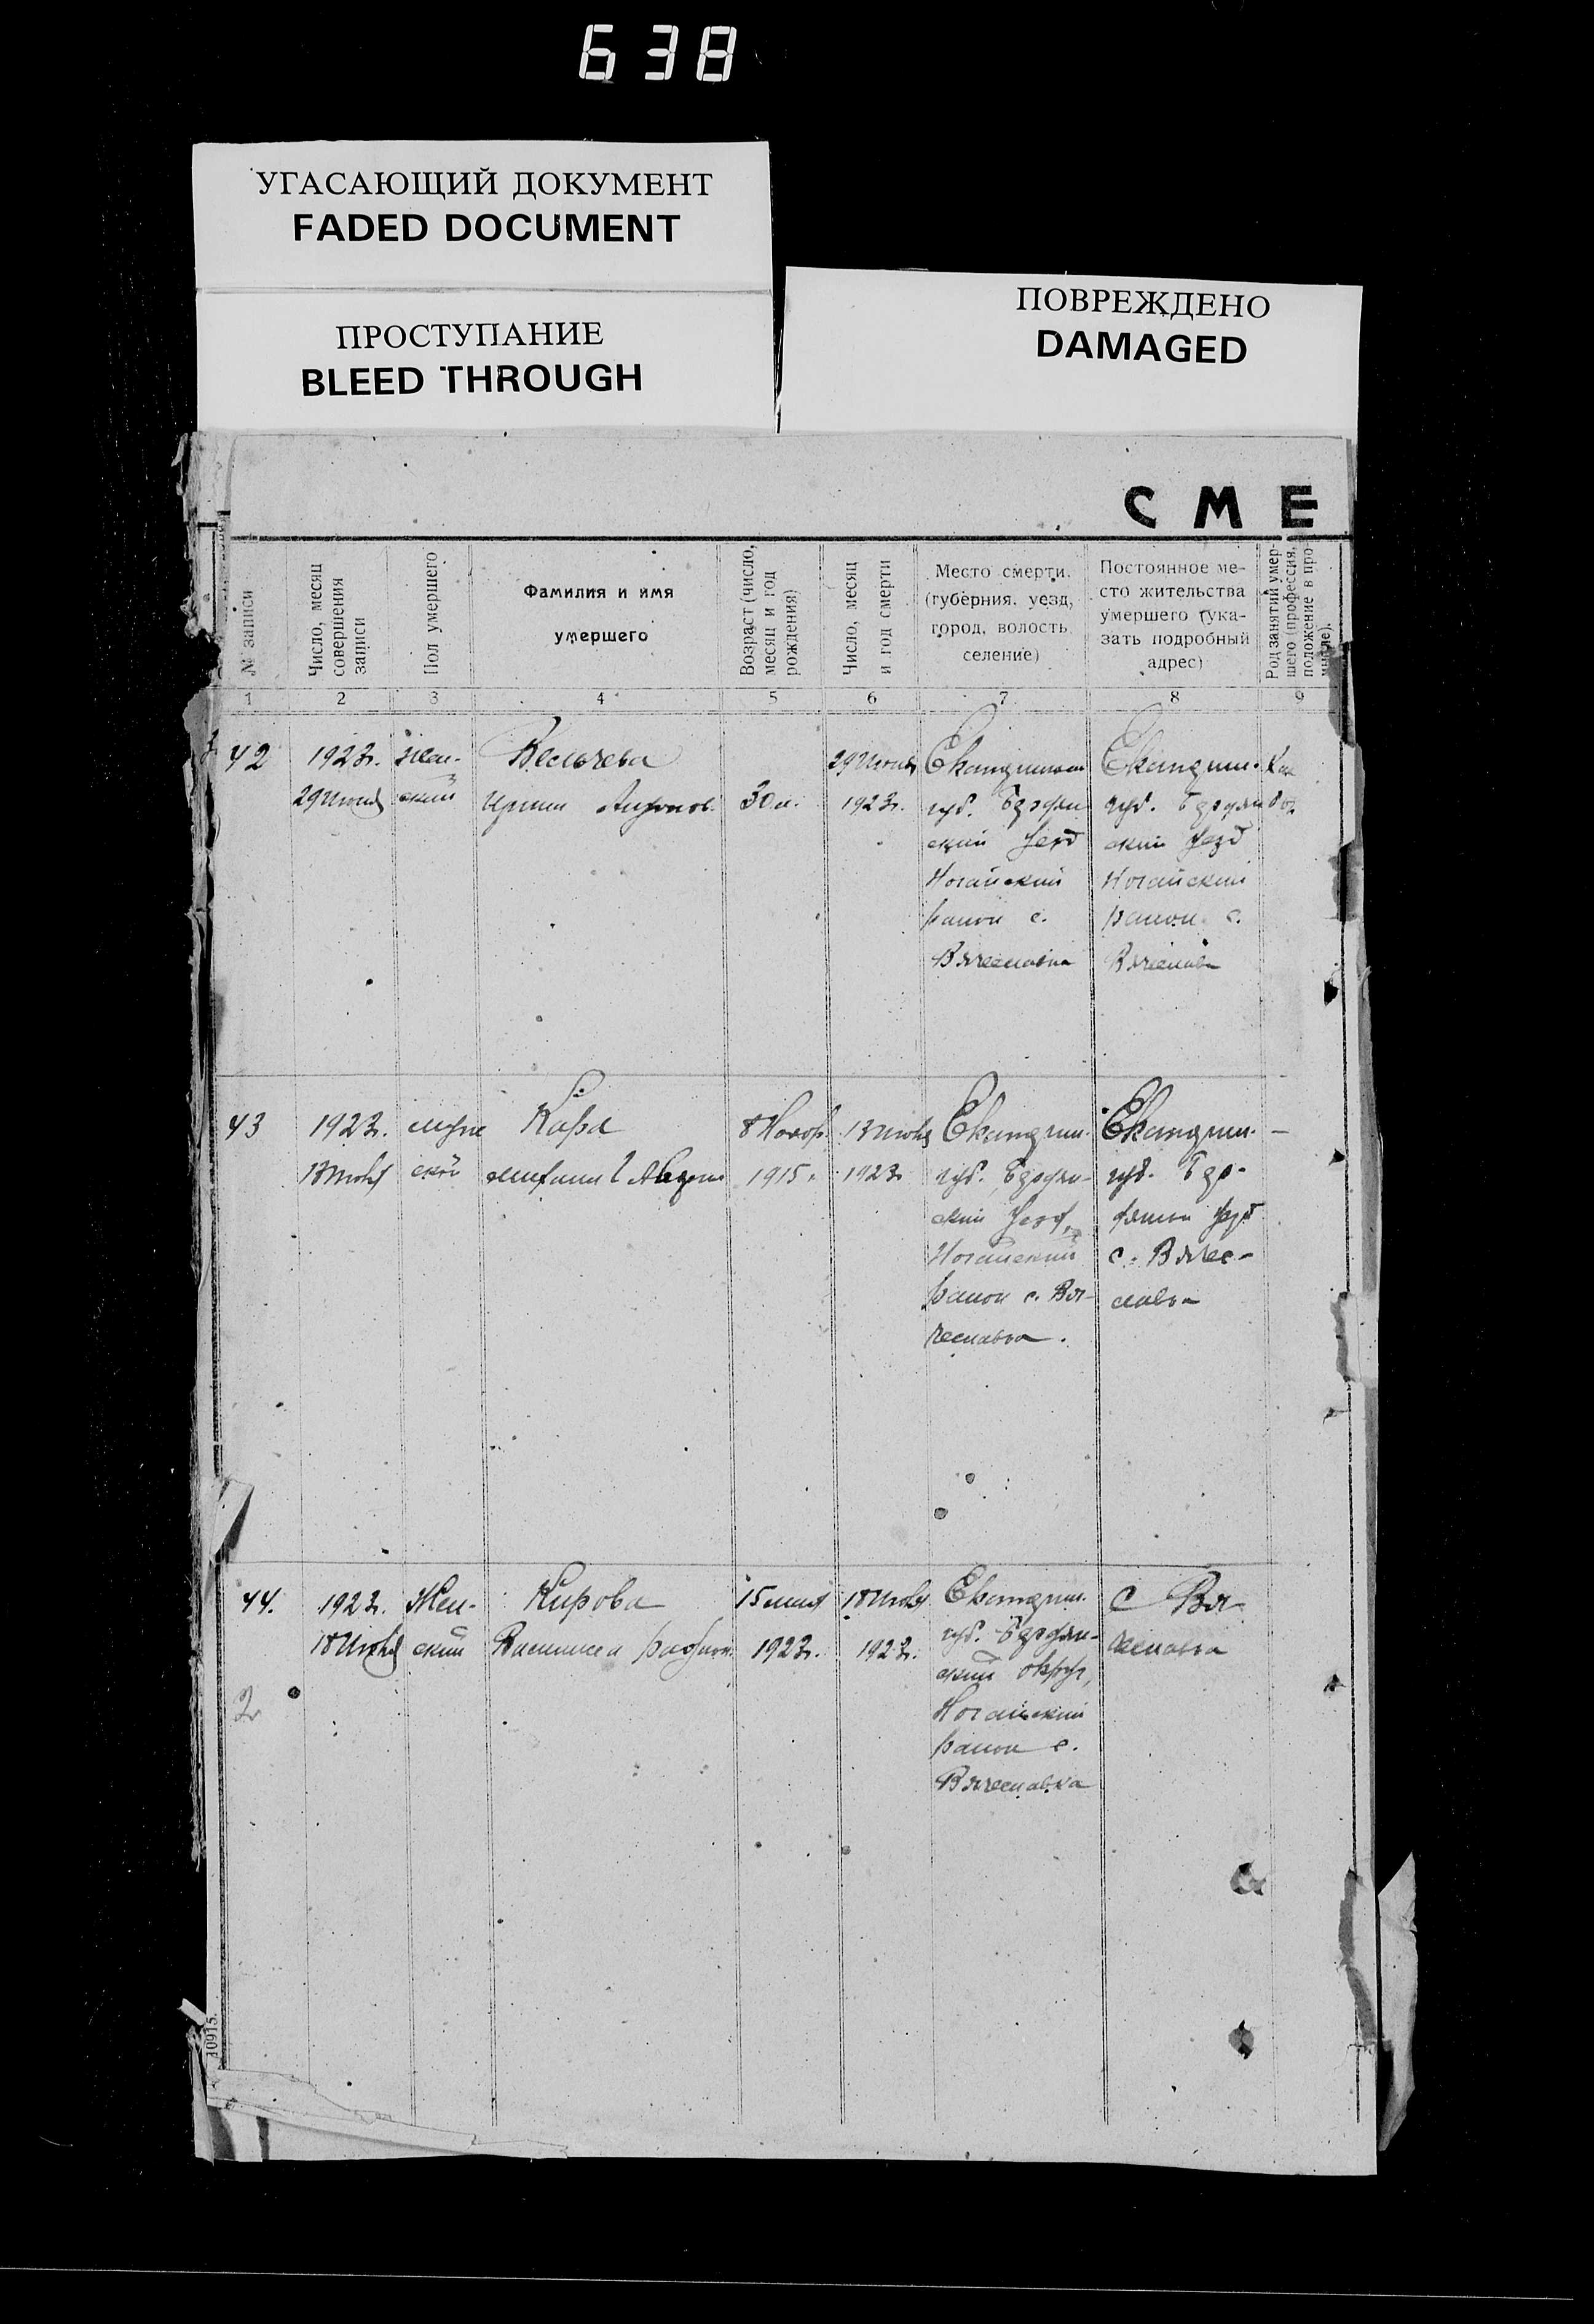 638
УГАСАЮЩИЙ ДОКУМЕНТ
FADED DOCUMENT
ПРОСТУПАНИЕ
BLEED THROUGH
ПОВРЕЖДЕНО
DAMAGED
СМЕ
№ записи
Число, месяц
совершения
записи
Пол умершего
Фамилия и имя
умершего
Возраст (число,
месяц и год
рождения)
Число, месяц
и год смерти
Место смерти.
(губерния, уезд,
город, волость
селение)
Постоянное ме-
сто жительства
умершего (ука-
зать подробный
адрес)
Род занятий умер-
шего (профессия,
положение в про-
мысле).
1 2 3 4 5 6 7 8 9
42
1923г.
29 Июня
Жен-
ский
Вельчева
30 л.
29 Июня
1923г.
губ.
ский Уезд
Ногайский
район с.
Вячеславка
Екатерин.
губ.
ский Уезд
Ногайский
район с.
43
1923г.
муж
ской
Кара
1915г.
1923г.
Екатерин.
губ.
ский Уезд,
Ногайский
район с. Вя-
чеславка.
Екатерин.
губ.
Уезд
с. Вячес-
лавка
44.
1923г.
18 Июля
Жен-
ский
Кирова
Василиса
15 мая
1923г.
18 Июля
1923г.
Екатерин.
губ.
ский округ,
Ногайский
район с.
Вячеславка
с Вя
чеславка
2
10915.